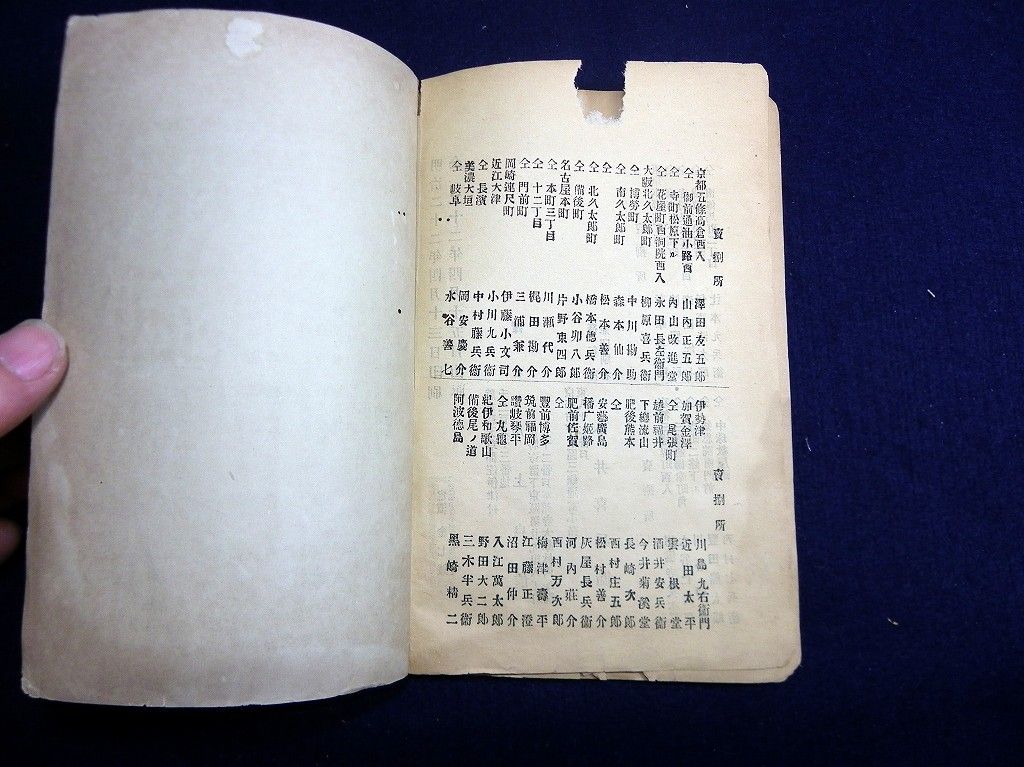 賣捌所
京都五條高倉西入 澤田友五郎
仝 御前通油小路西 山內正五郎
仝 寺町松原下ル 內山改進堂
仝 花屋町西洞院西入 永田長左衞門
大阪北久太郎町 柳原喜兵衞
仝 博勞町 中川勘助
仝 南久太郎町 森本仙介
仝 松本善介
仝 北久太郎町 橋本德兵衞
仝 備後町 小谷卯八郎
名古屋本町 片野東四郎
仝 本町三丁目 川瀨代介
仝 十二丁目 梶田勘介
仝 門前町 三浦兼介
岡崎連尺町 伊藤小文司
近江大津 小川九兵衞
仝 長濱 中村藤兵衞
美濃大垣 岡安慶介
仝 岐阜 水谷善七
賣捌所
伊勢津 川島九右衞門
加賀金澤 近田太平
仝 尾張町 雲根堂
越前福井 酒井安兵衞
下總流山 今井菊溪堂
肥後熊本 長崎次郎
仝 西村庄五郎
安藝廣島 松村善介
播广姬路 灰屋長兵衞
肥前佐賀 河內莊介
仝 西村万次郎
豐前博多 梅津壽平
筑前福岡 江藤正澄
讚岐琴平 沼田仲介
仝 丸龜 入江萬太郎
紀伊和歌山 野田大二郎
備後尾ノ道 三木半兵衞
阿波德島 黑崎精二